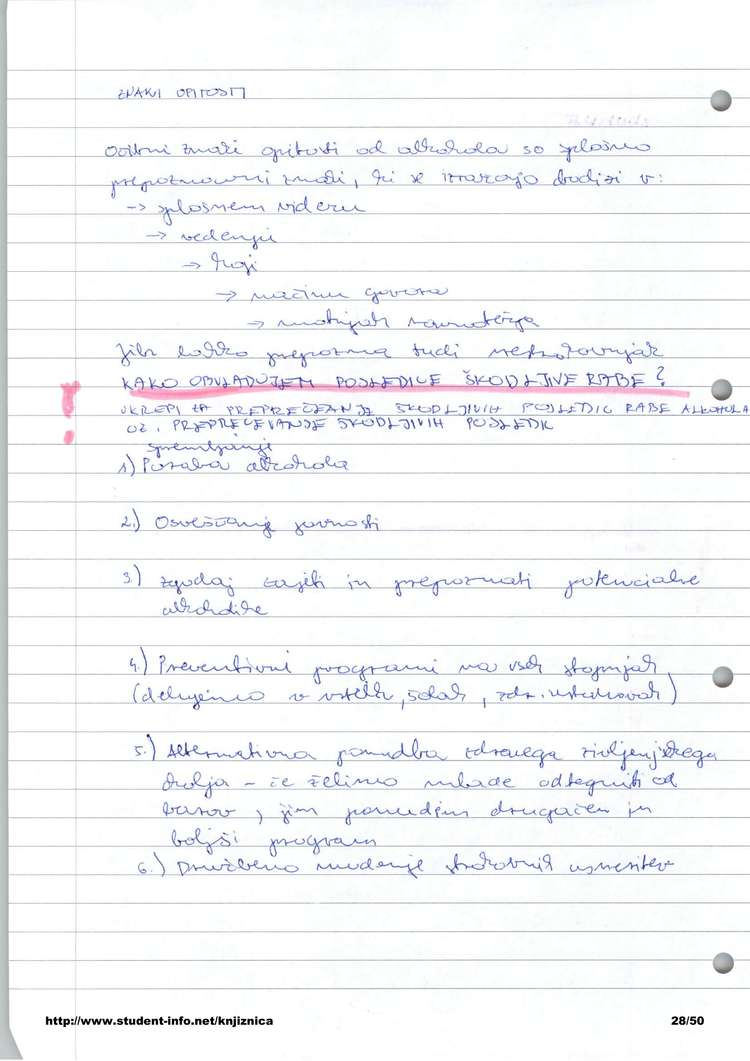 ZNAKI OPITOSTI
Očitni znaki opitosti od alkohola so splošno
prepoznavni znaki, ki se izražajo drugizi v:
→ splošnem videzu
→ vedenju
→ hoji
→ načinu govora
→ motnjah ravnotežja
Jih lahko prepozna tudi nestrokovnjak
KAKO OBVLADUJEM POSLEDICE ŠKODLJIVE RABE?
!
UKREPI ZA PREPREČEVANJE ŠKODLJIVIH POSLEDIC RABE ALKOHOLA
OZ. PREPREČEVANJE ŠKODLJIVIH POSLEDIC
spremljanje
1) Poraba alkohola
2.) Osveščanje javnosti
3.) zgodaj zajeti in prepoznati potencialne
alkoholike
4.) Preventivni programi na vseh stopnjah
(delujemo v vrtcih, šolah, zdr. ustanovah)
5.) Alternativna ponudba zdravega življenjskega
okolja - če želimo mlade odtegniti od
barov, jim ponudim drugačen in
boljši program
6.) Družbeno nudenje strokovnih usmeritev
http://www.student-info.net/knjiznica
28/50